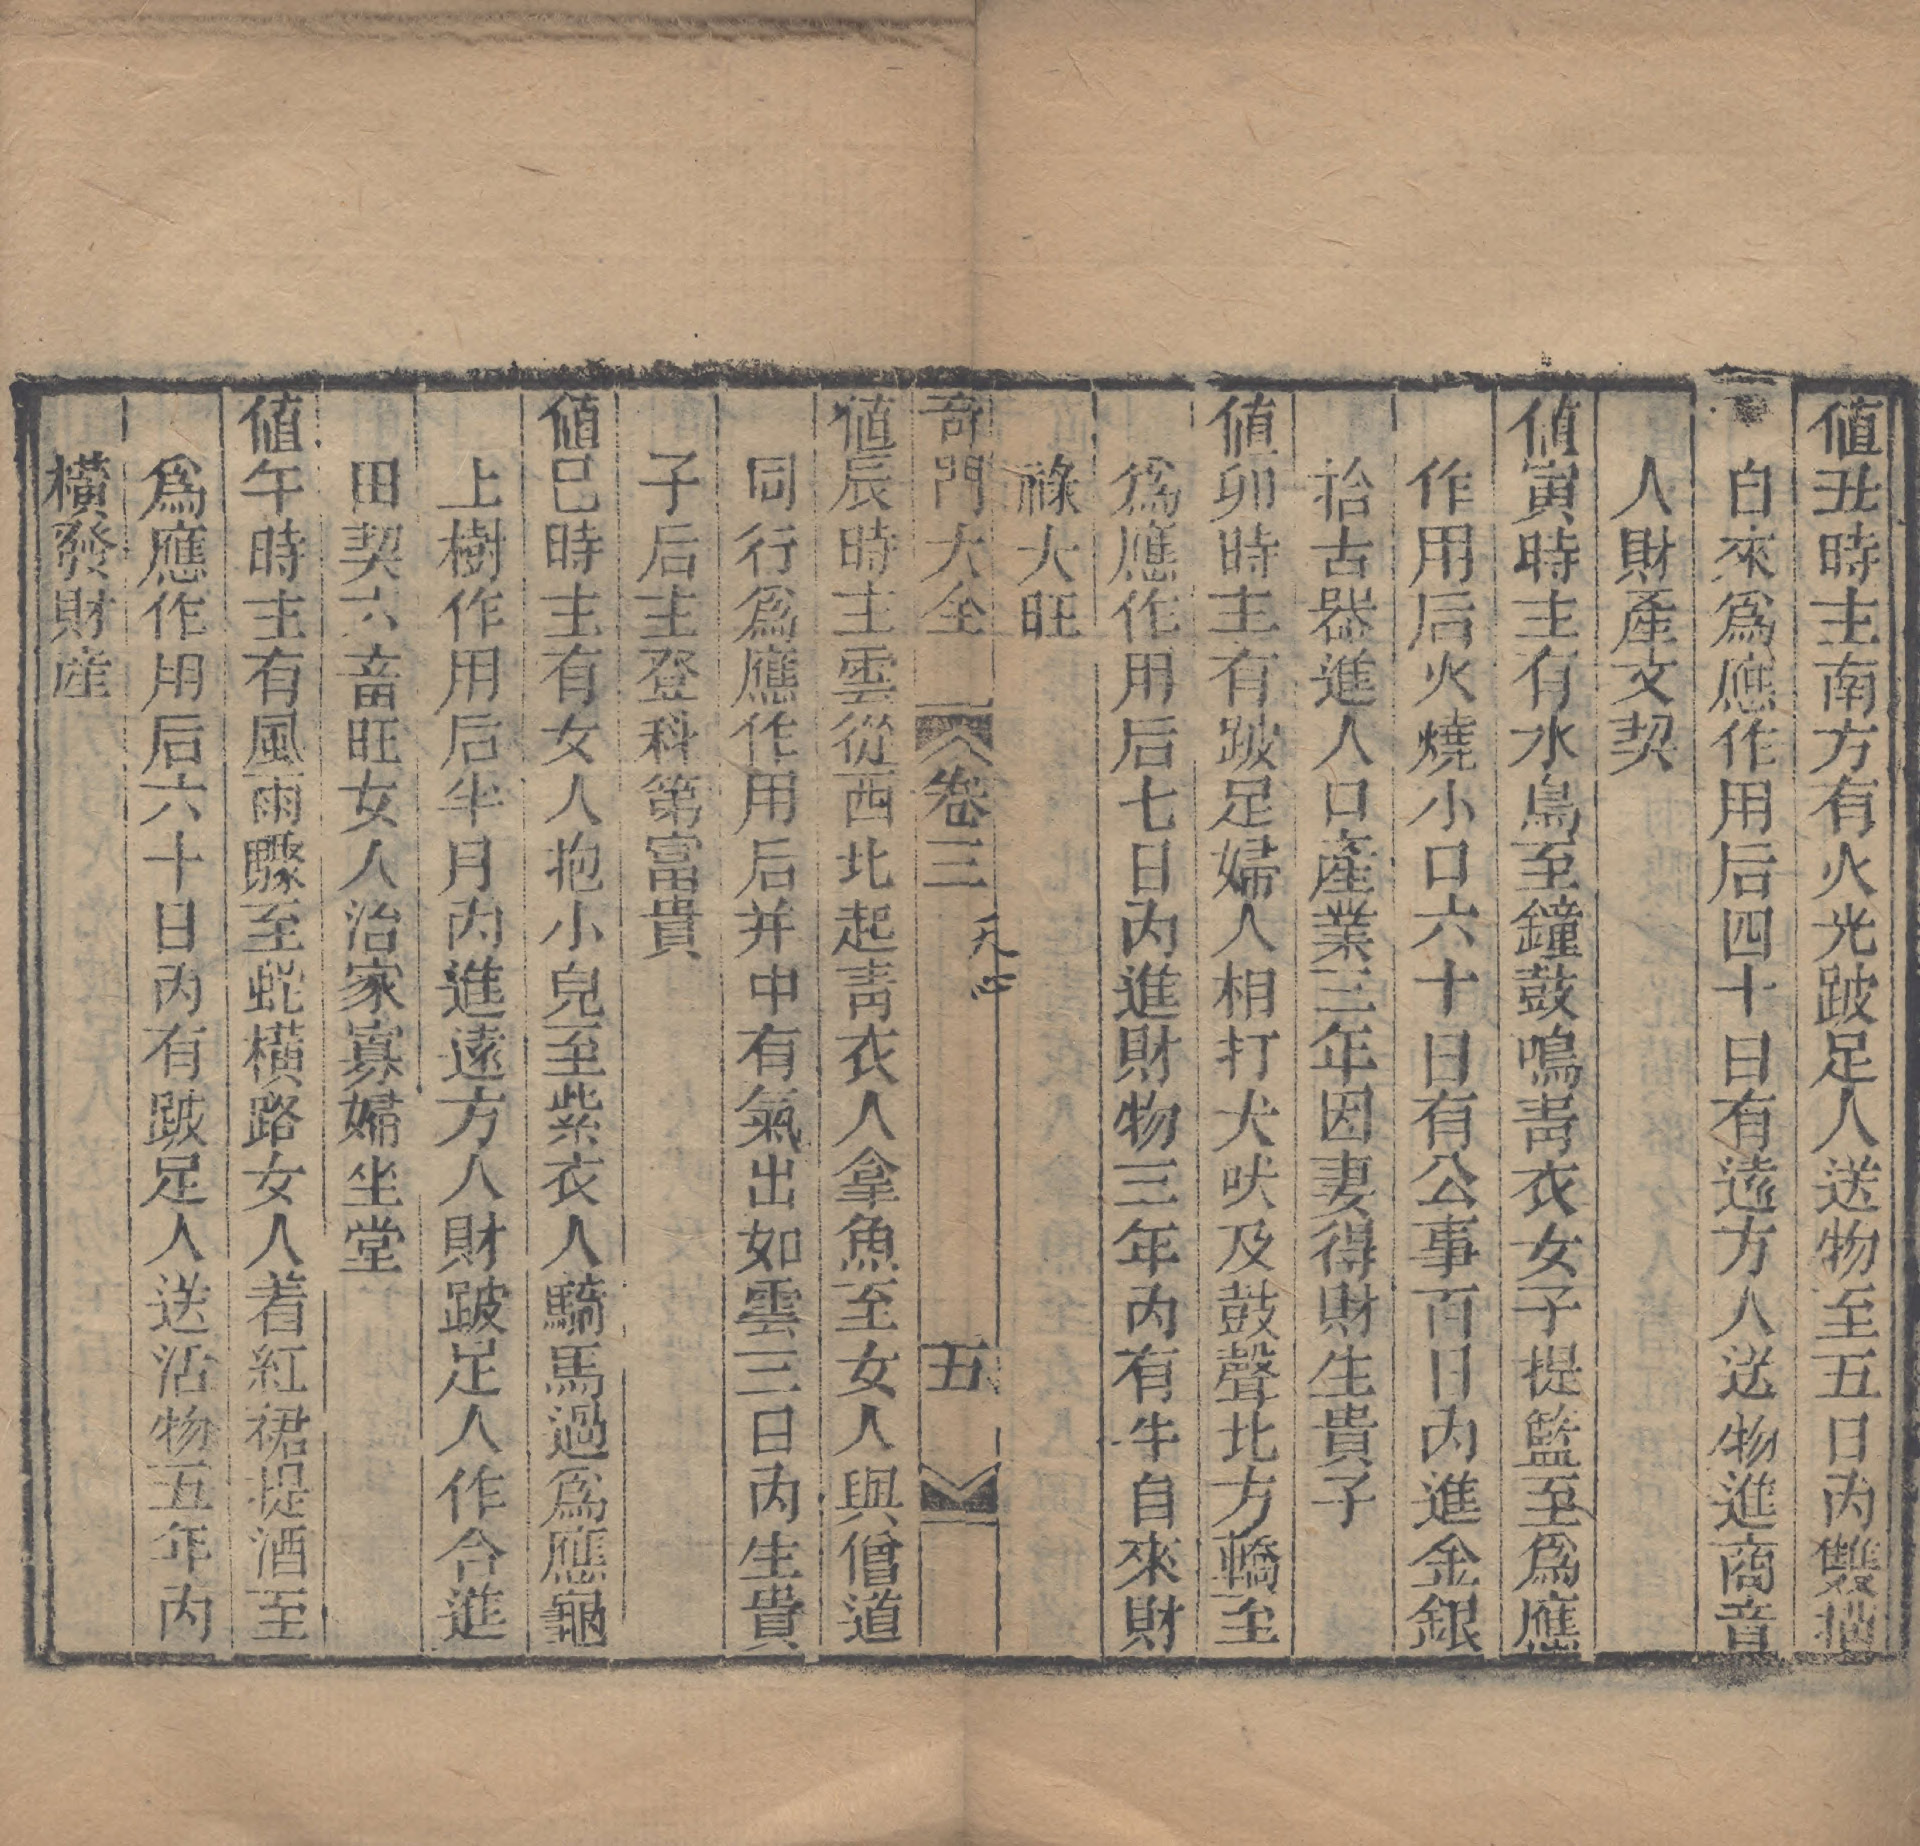 值丑時主南方有火光跛足人送物至五日內雙
自來爲應作用后四十日有遠方人送物進商音
人財產文契
值寅時主有水鳥至鐘鼓鳴青衣女子提籃至爲應
作用后火燒小口六十日有公事百日內進金銀
拾古器進人口產業三年因妻得財生貴子
值卯時主有跛足婦人相打犬吠及鼓聲北方轎至
爲應作用后七日內進財物三年內有牛自來財
祿大旺
奇門大全 卷三 五
天心
值辰時主雲從西北起青衣人拿魚至女人與僧道
同行爲應作用后并中有氣出如雲三日內生貴
子后主登科第富貴
值巳時主有女人抱小兒至紫衣人騎馬過爲應龜
上樹作用后半月內進遠方人財跛足人作合進
田契六畜旺女人治家寡婦坐堂
值午時主有風雨驟至蛇橫路女人着紅裙提酒至
爲應作用后六十日內有跛足人送活物五年內
橫發財產